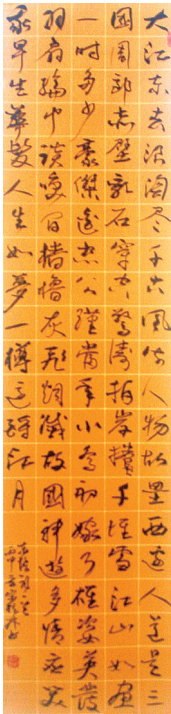 大江东去浪淘尽千古風流人物故壘西边人道是三
國周郎赤壁亂石穿空驚濤拍岸捲千堆雪江山如畫
一时多少豪傑遥想公瑾當年小喬初嫁了雄姿英發
羽扇綸巾談笑间檣櫓灰飛烟滅故國神遊多情应笑
我早生華髮人生如夢一樽還酹江月